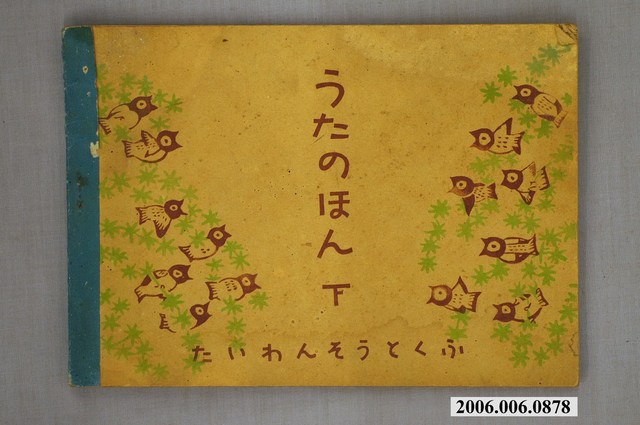 うたのほん
下
たいわんそうとくふ
2006.006.0878